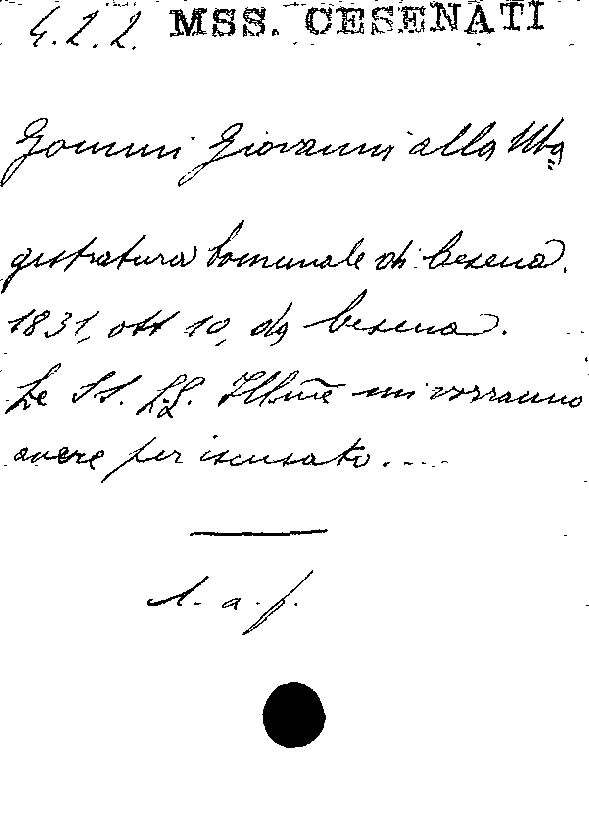 4.2.2. MSS. CESENATI
Gommi Giovanni alla Ma=
gistratura Comunale di Cesena.
1831, ott 10, da Cesena.
Le SS. LL. Ill̃me mi vorranno
avere per iscusato....
l. a. f.